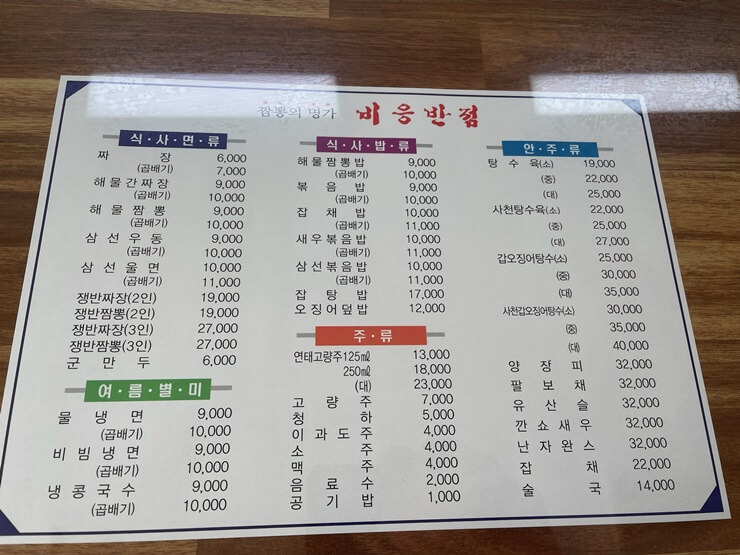 짬뽕의 명가 비응반점
식·사·면·류
짜 장 6,000
(곱배기) 7,000
해물간짜장 9,000
(곱배기) 10,000
해물짬뽕 9,000
(곱배기) 10,000
삼선우동 9,000
(곱배기) 10,000
삼선울면 10,000
(곱배기) 11,000
쟁반짜장(2인) 19,000
쟁반짬뽕(2인) 19,000
쟁반짜장(3인) 27,000
쟁반짬뽕(3인) 27,000
군만두 6,000
여·름·별·미
물냉면 9,000
(곱배기) 10,000
비빔냉면 9,000
(곱배기) 10,000
냉콩국수 9,000
(곱배기) 10,000
식·사·밥·류
해물짬뽕밥 9,000
(곱배기) 10,000
볶음밥 9,000
(곱배기) 10,000
잡채밥 10,000
(곱배기) 11,000
새우볶음밥 10,000
(곱배기) 11,000
삼선볶음밥 10,000
(곱배기) 11,000
잡탕밥 17,000
오징어덮밥 12,000
주·류
연태고량주125㎖ 13,000
250㎖ 18,000
(대) 23,000
고량주 7,000
청하 5,000
이과도주 4,000
소주 4,000
맥주 4,000
음료수 2,000
공기밥 1,000
안·주·류
탕수육(소) 19,000
(중) 22,000
(대) 25,000
사천탕수육(소) 22,000
(중) 25,000
(대) 27,000
갑오징어탕수(소) 25,000
(중) 30,000
(대) 35,000
사천갑오징어탕수(소) 30,000
(중) 35,000
(대) 40,000
양장피 32,000
팔보채 32,000
유산슬 32,000
깐쇼새우 32,000
난자완스 32,000
잡채 22,000
술국 14,000